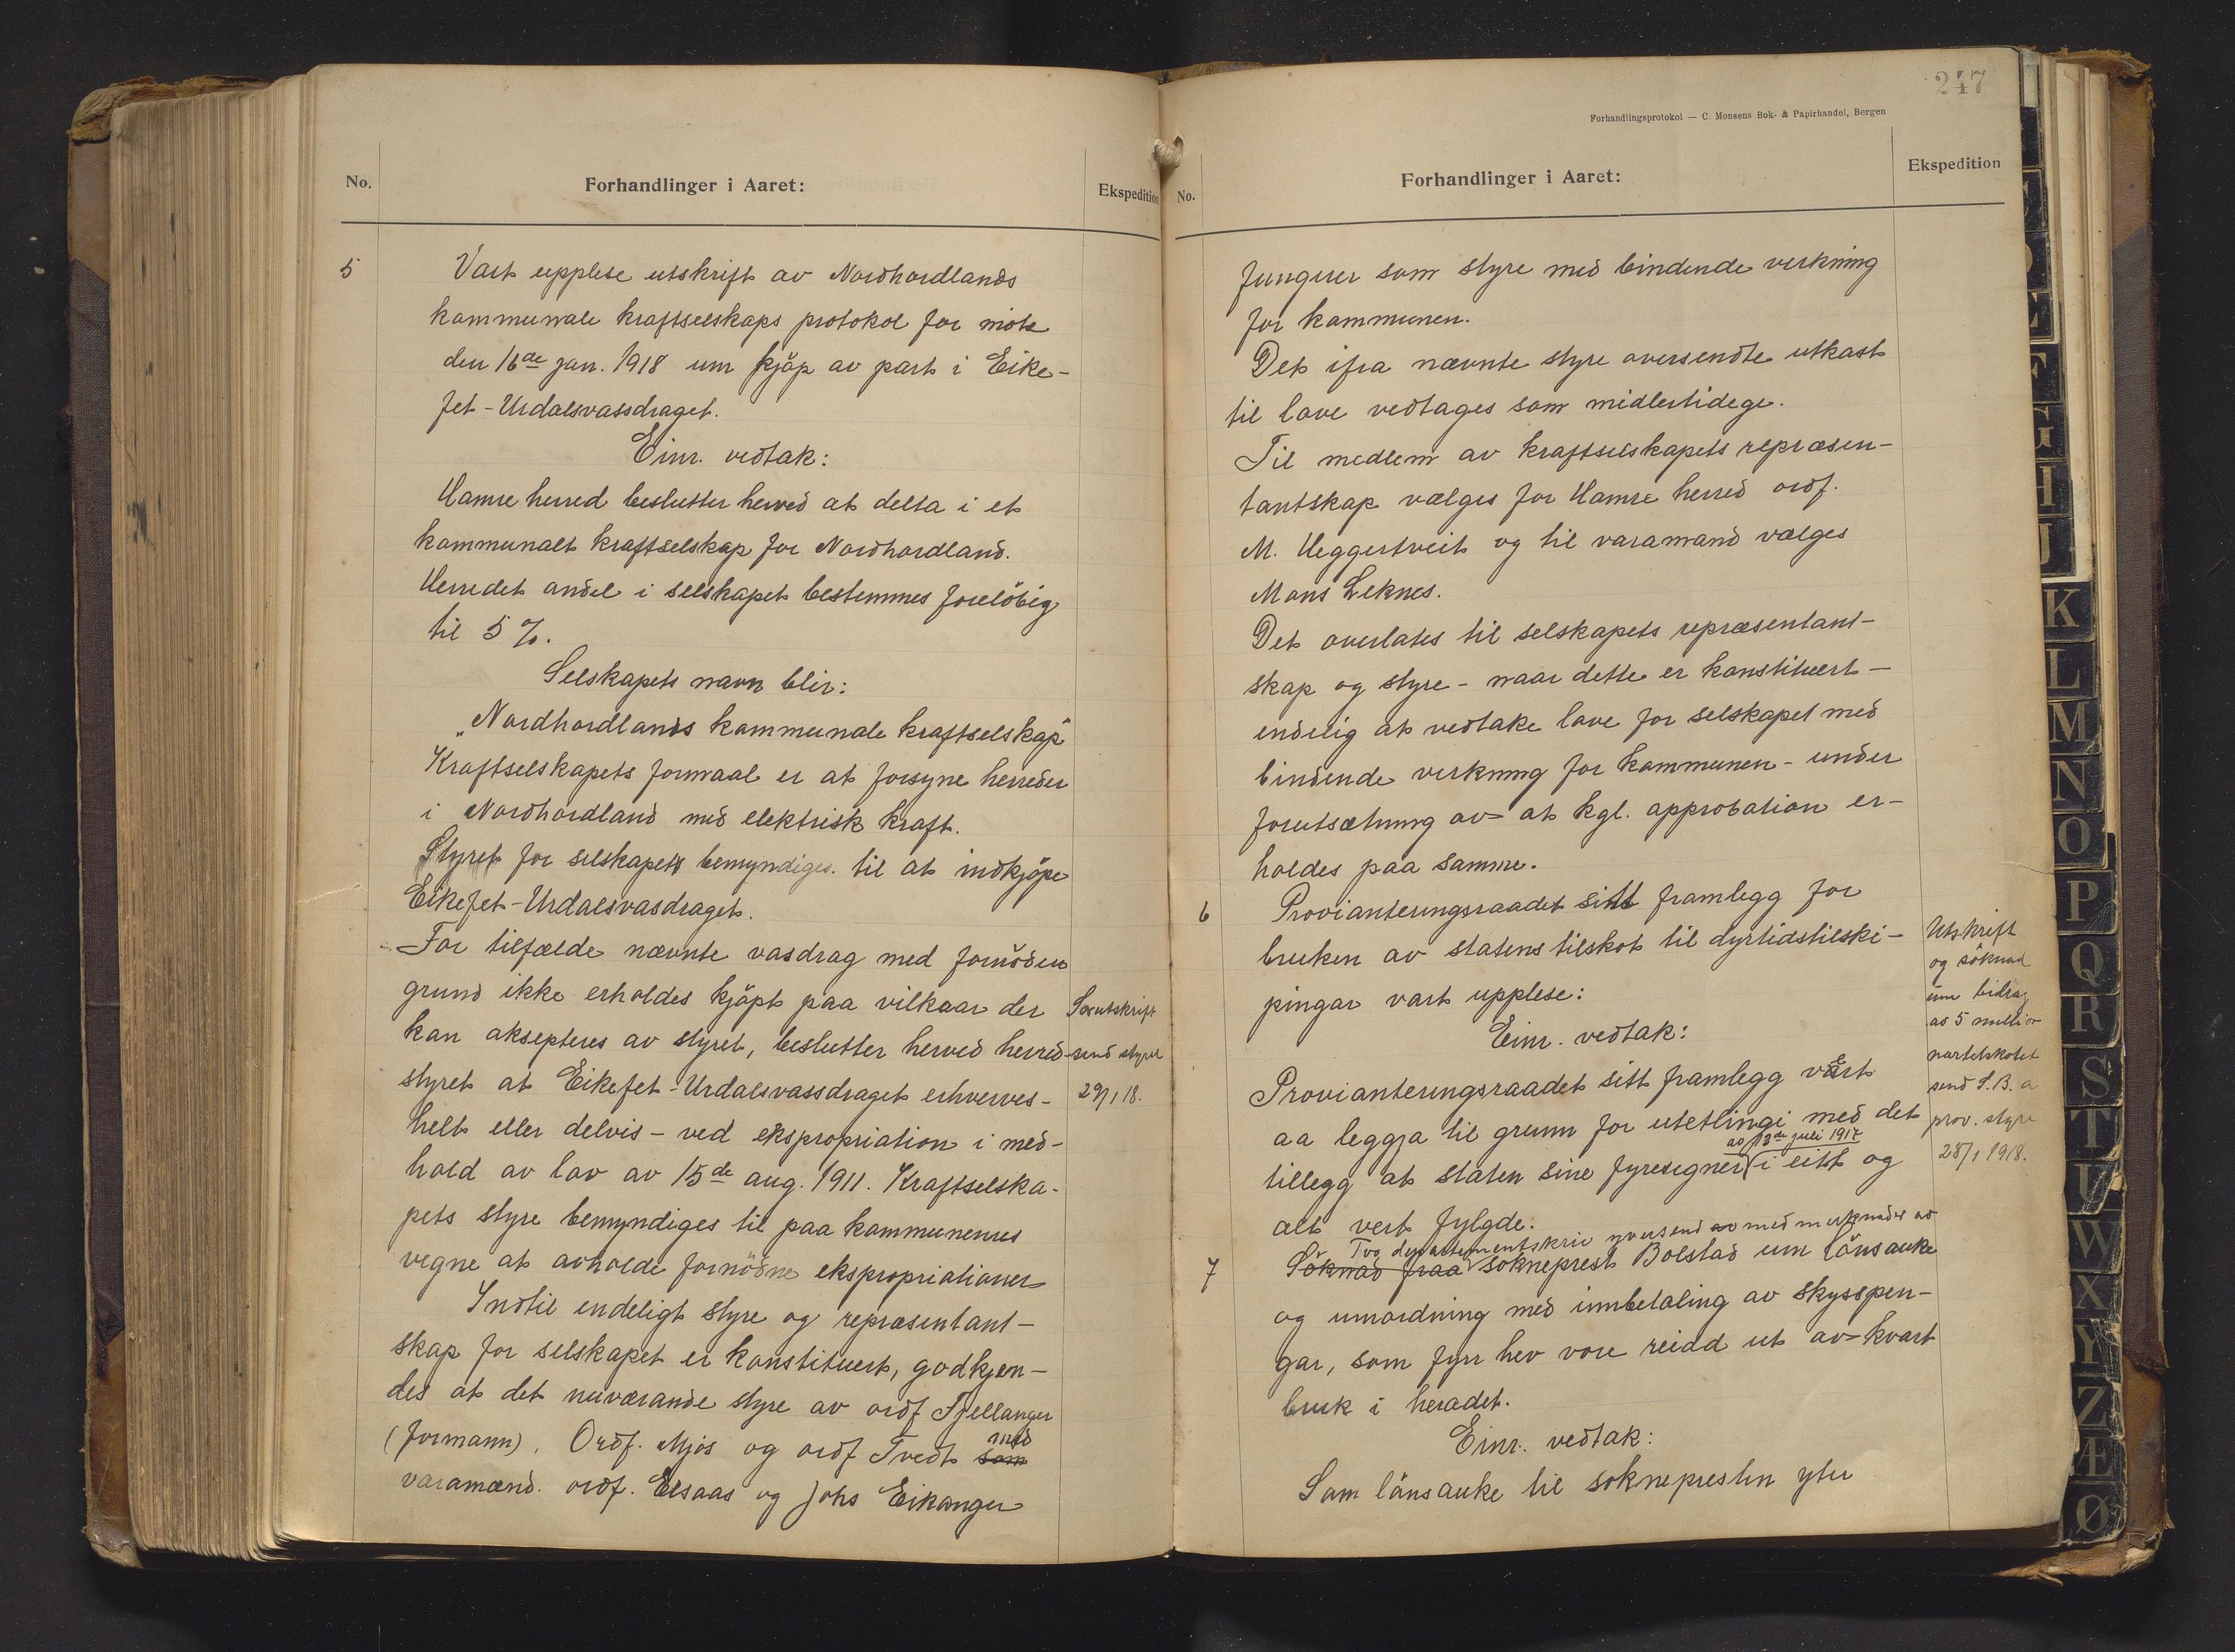 No.
Forhandlinger i Aaret:
Ekspedition
5
Vart upplese utskrift av Nordhordlands
kommunale kraftselskaps protokol for möte
den 16de jan. 1918 um kjöp av part i Eike-
fet-Urdalsvassdraget.
Einr. vedtak:
Hamre herred beslutter herved at delta i et
kommunalt kraftselskap for Nordhordland.
Herredet andel i selskapet bestemmes forelöbig
til 5 %.
Selskapets navn blir:
„Nordhordlands kommunale kraftselskap"
Kraftselskapets formaal er at forsyne herreder
i Nordhordland med elektrisk kraft.
Styret for selskapets bemyndiges til at indkjöpe
Eikefet-Urdalsvasdraget.
For tilfælde nævnte vasdrag med fornöden
grund ikke erholdes kjöpt paa vilkaar der
kan aksepteres av styret, beslutter herved herred-
styret at Eikefet-Urdalsvassdraget erhverves -
helt eller delvis - ved ekspropriation i med-
hold av lov av 15de aug. 1911. Kraftselska-
pets styre bemyndiges til paa kommunenes
vegne at avholde fornödne ekspropriationer
Indtil endeligt styre og repræsentant-
skap for selskapet er konstituert, godkjen-
des at det nuværande styre av ordf Fjellanger
(formann), Ordf. Mjös og ordf Tvedt som med
varamænd. ordf. Elsaas og Johs Eikanger
Særutskrift
send styret
29/1 18.
247
Forhandlingsprotokol — C. Monsens Bok- & Papirhandel, Bergen
No.
Forhandlinger i Aaret:
Ekspedition
fungerer som styre med bindende verkning
for kommunen.
Det ifra nævnte styre oversendte utkast
til love vedtages som midlertidege.
Til medlem av kraftselskapets repræsen-
tantskap vælges for Hamre herred ordf.
M. Heggertveit og til varamand vælges
Mons Leknes.
Det overlates til selskapets repræsentant-
skap og styre - naar dette er konstituert -
endelig at vedtake love for selskapet med
bindende verkning for kommunen - under
forutsætning av at kgl. approbation er-
holdes paa samme.
6
Provianteringsraadet sitt framlegg for
bruken av statens tilskot til dyrtidstilski-
pingar vart upplese:
Einr. vedtak:
Provianteringsraadet sitt framlegg vert
aa leggja til grunn for utetlingi med det
av 13de juli 1917
tillegg at staten sine fyresegner i eitt og
alt vert fylgde.
Utskrift
og söknad
um bidrag
av 5 million
send S. B. a
prov. styre
28/1 1918.
Tvo departementskriv yversend av med merknader av
7
Söknad fraa sokneprest Bolstad um länsauke
og umordning med innbetaling av skysspen-
gar, som fyrr hev vore reidd ut av kvart
bruk i heradet.
Einr. vedtak:
Som länsauke til sokneprestn yter
K
L
M
N
O
P
Q
R
S
T
U
W
X
Y
Z
Æ
Ø